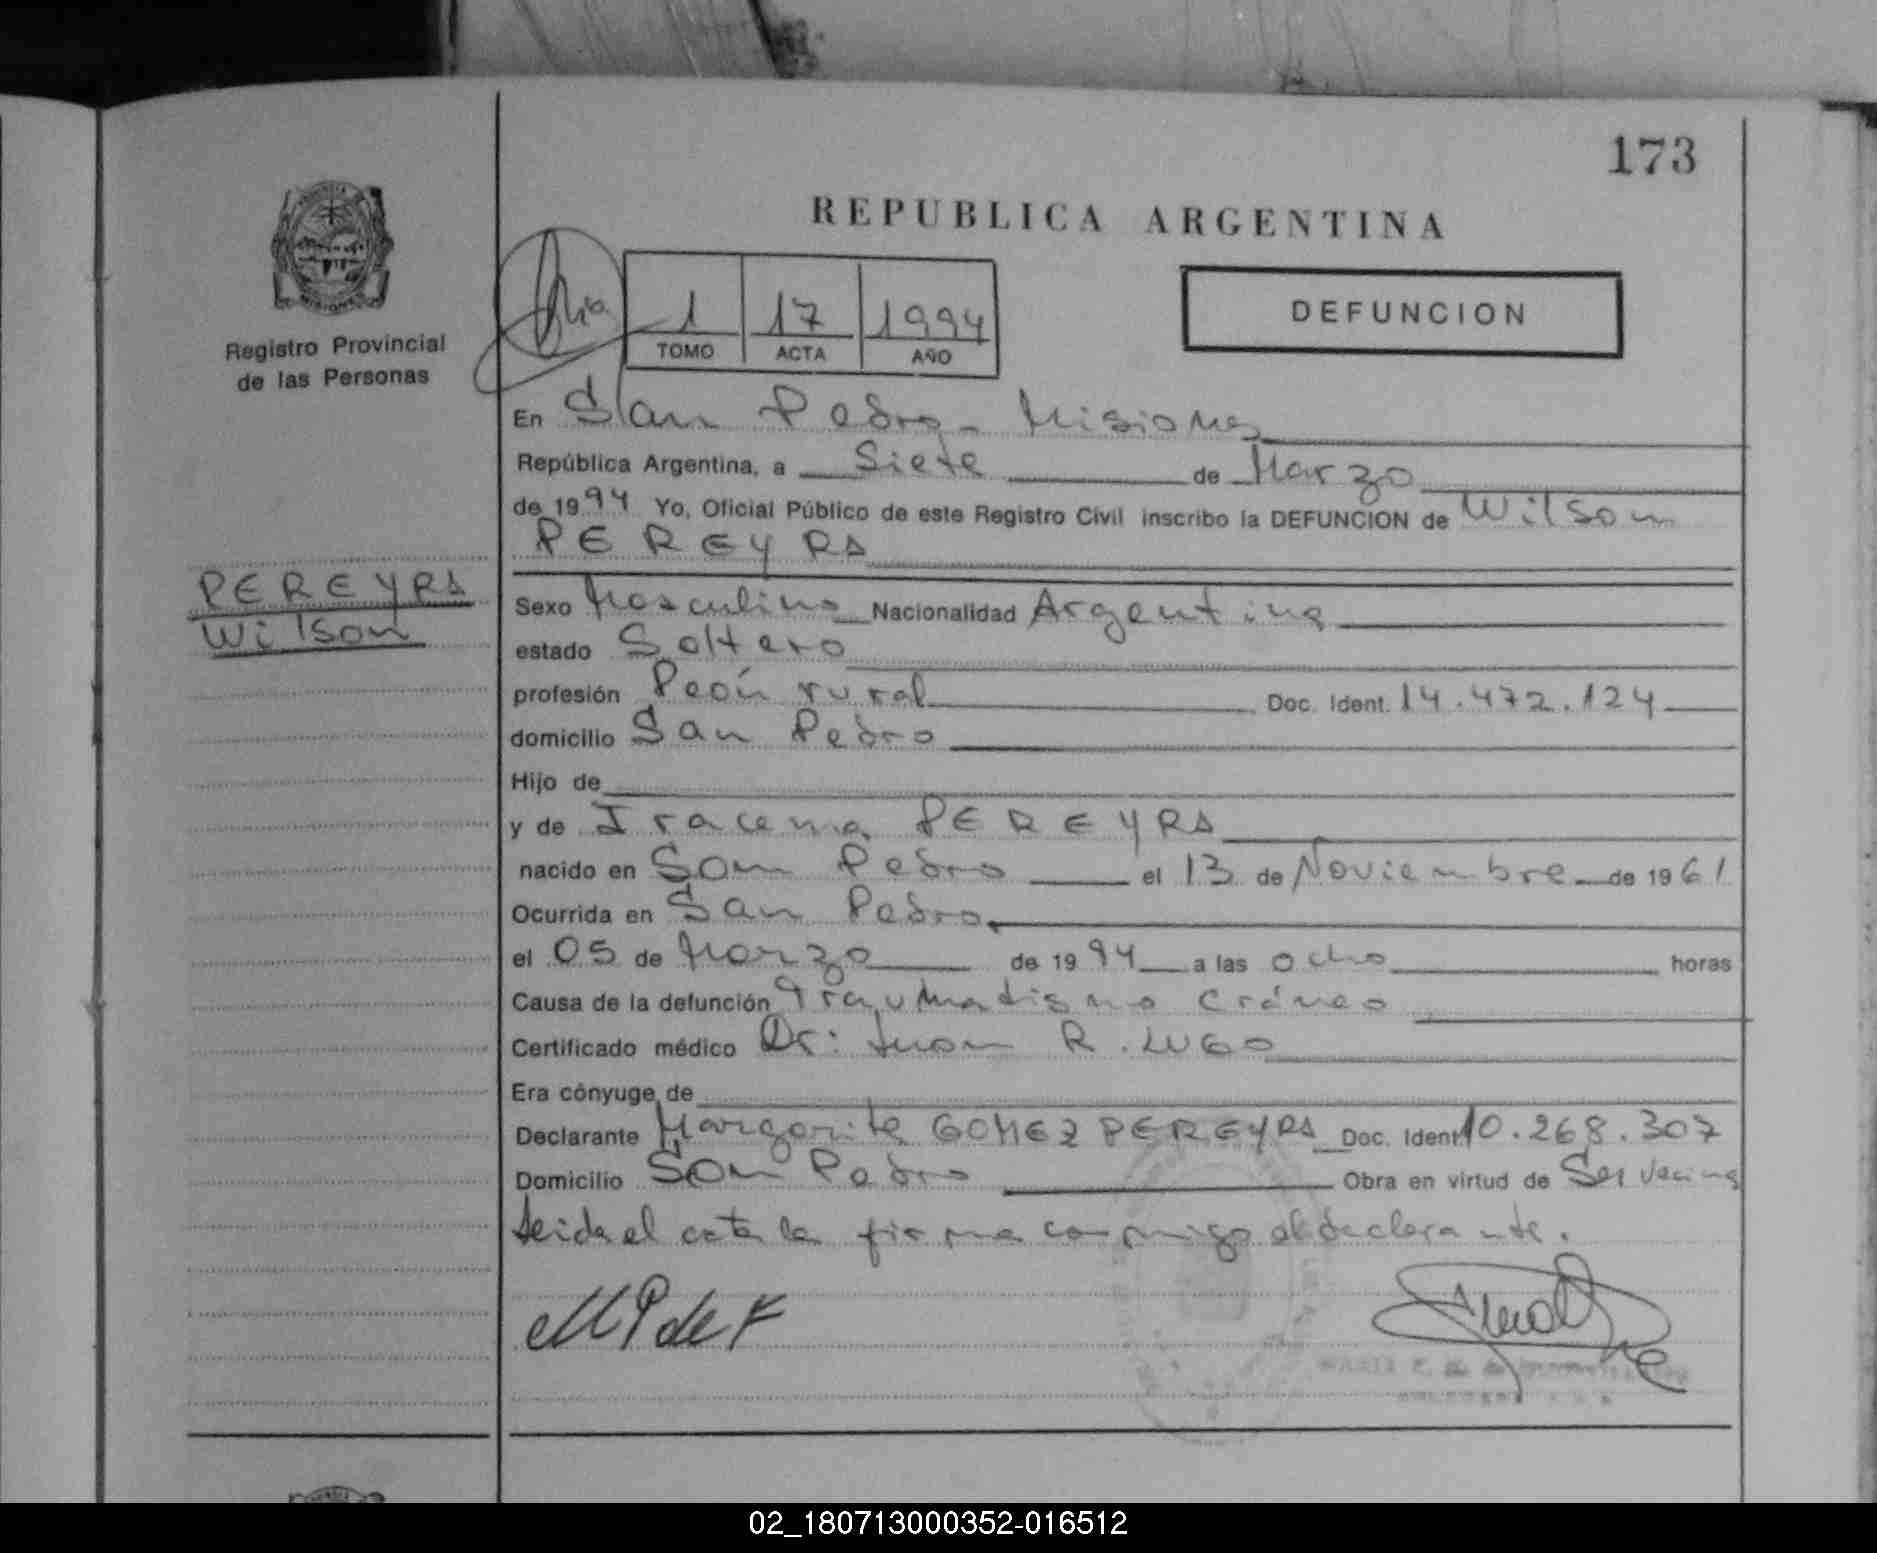 173
REPUBLICA ARGENTINA
Registro Provincial
de las Personas
1 17 1994
TOMO ACTA AÑO
DEFUNCION
En San Pedro - Misiones
República Argentina, a Siete de Marzo
de 1994 Yo, Oficial Público de este Registro Civil inscribo la DEFUNCION de Wilson
PEREYRA
PEREYRA
Wilson
Sexo Masculino Nacionalidad Argentina
estado Soltero
profesión Peón rural Doc. Ident. 14.472.124
domicilio San Pedro
Hijo de
y de Iracema PEREYRA
nacido en San Pedro el 13 de Noviembre de 1961
Ocurrida en San Pedro
el 05 de Marzo de 1994 a las ocho horas
Causa de la defunción Traumatismo Cráneo
Certificado médico Dr: Juan R. LUGO
Era cónyuge de
Declarante Margarita GOMEZ PEREYRA Doc. Ident 10.268.307
Domicilio San Pedro Obra en virtud de Ser vecina
leida el acta la firma conmigo el declarante.
02_180713000352-016512